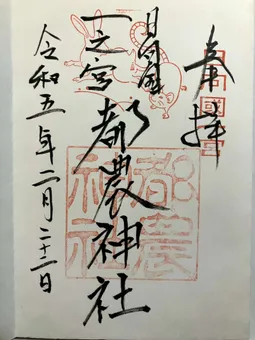 奉拝
日向國
日向國
一之宮
都農神社
都農
神社
令和五年二月二十二日